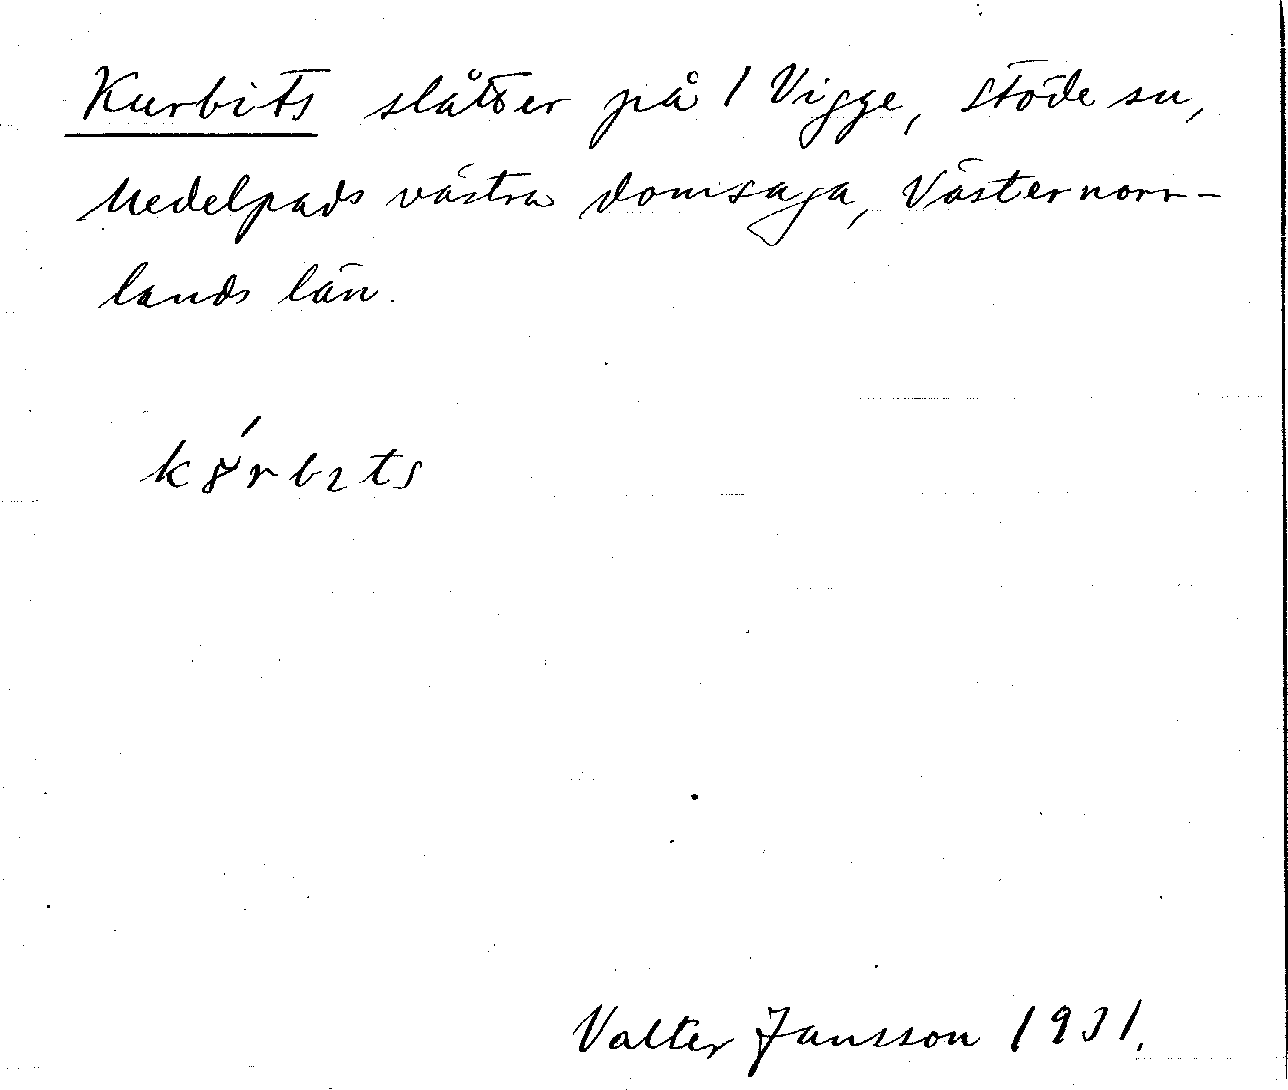 Kurbits slåtter på 1 Vigge, Stöde sn,
Medelpads västra domsaga, Västernorr-
lands län.
Valter Jansson 1931.